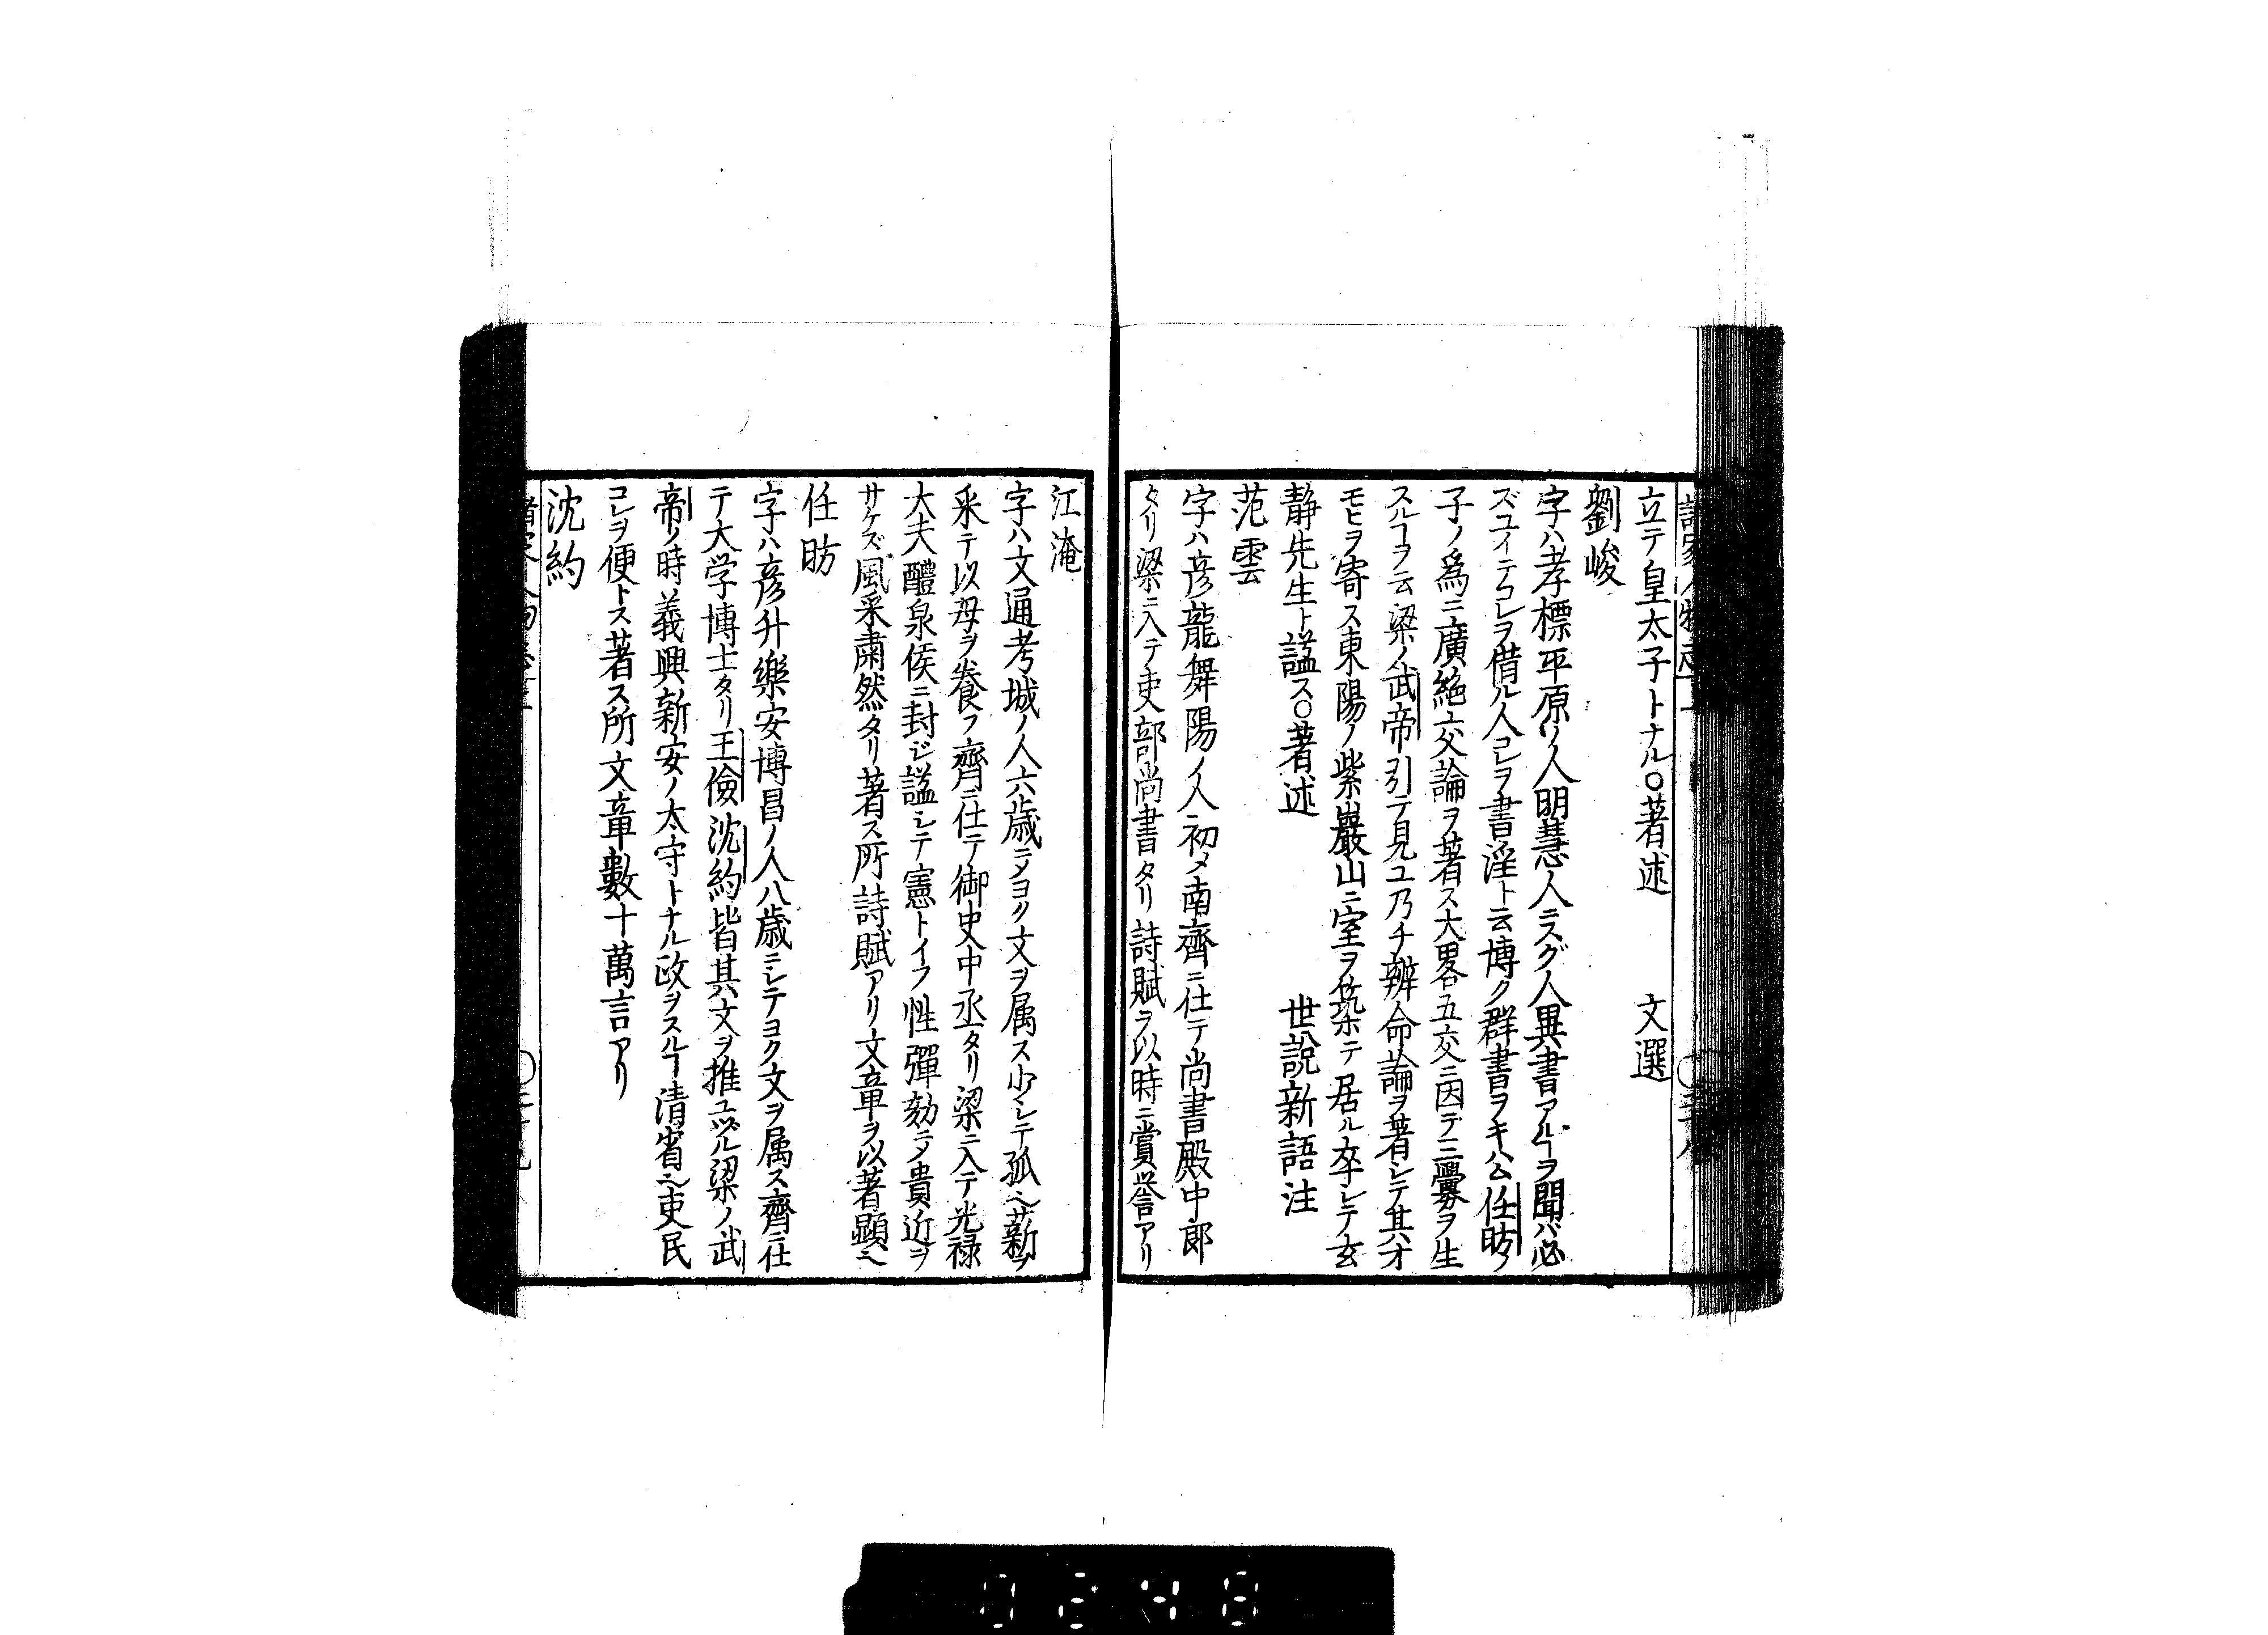 立テ皇太子トナル〇著述　文選
劉峻
字ハ孝標平原ノ人明慧人ニスグ人異書アルヿヲ聞バ必
ズユイテコレヲ借ル人コレヲ書淫ト云博ク群書ヲキハム任昉ノ
子ノ為ニ廣絶交論ヲ著ス大畧五交ニ因テ三釁ヲ生
スルヿヲ云梁ノ武帝引テ見ユ乃チ辨命論ヲ著シテ其オ
モヒヲ寄ス東陽ノ紫巌山ニ室ヲ築テ居ル卒シテ玄
静先生ト謚ス〇著述　世説新語注
范雲
字ハ彦龍舞陽ノ人初メ南齊ニ仕テ尚書殿中郎
タリ梁ニ入テ吏部尚書タリ詩賦ヲ以時ニ賞誉アリ
江淹
字ハ文通考城ノ人六歳ニメヨク文ヲ属ス少シテ孤也薪ヲ
采テ以母ヲ養フ齊ニ仕テ御史中丞タリ梁ニ入テ光禄
大夫醴泉侯ニ封ジ謚シテ憲トイフ性彈劾ニメ貴近ヲ
サケズ風采粛然タリ著ス所詩賦アリ文章ヲ以著顯也
任昉
字ハ彦升樂安博昌ノ人八歳ニシテヨク文ヲ属ス齊ニ仕
テ大学博士タリ王儉沈約皆其文ヲ推ユヅル梁ノ武
帝ノ時義興新安ノ太守トナル政ヲスルヿ清省也吏民
コレヲ便トス著ス所文章數十萬言アリ
沈約